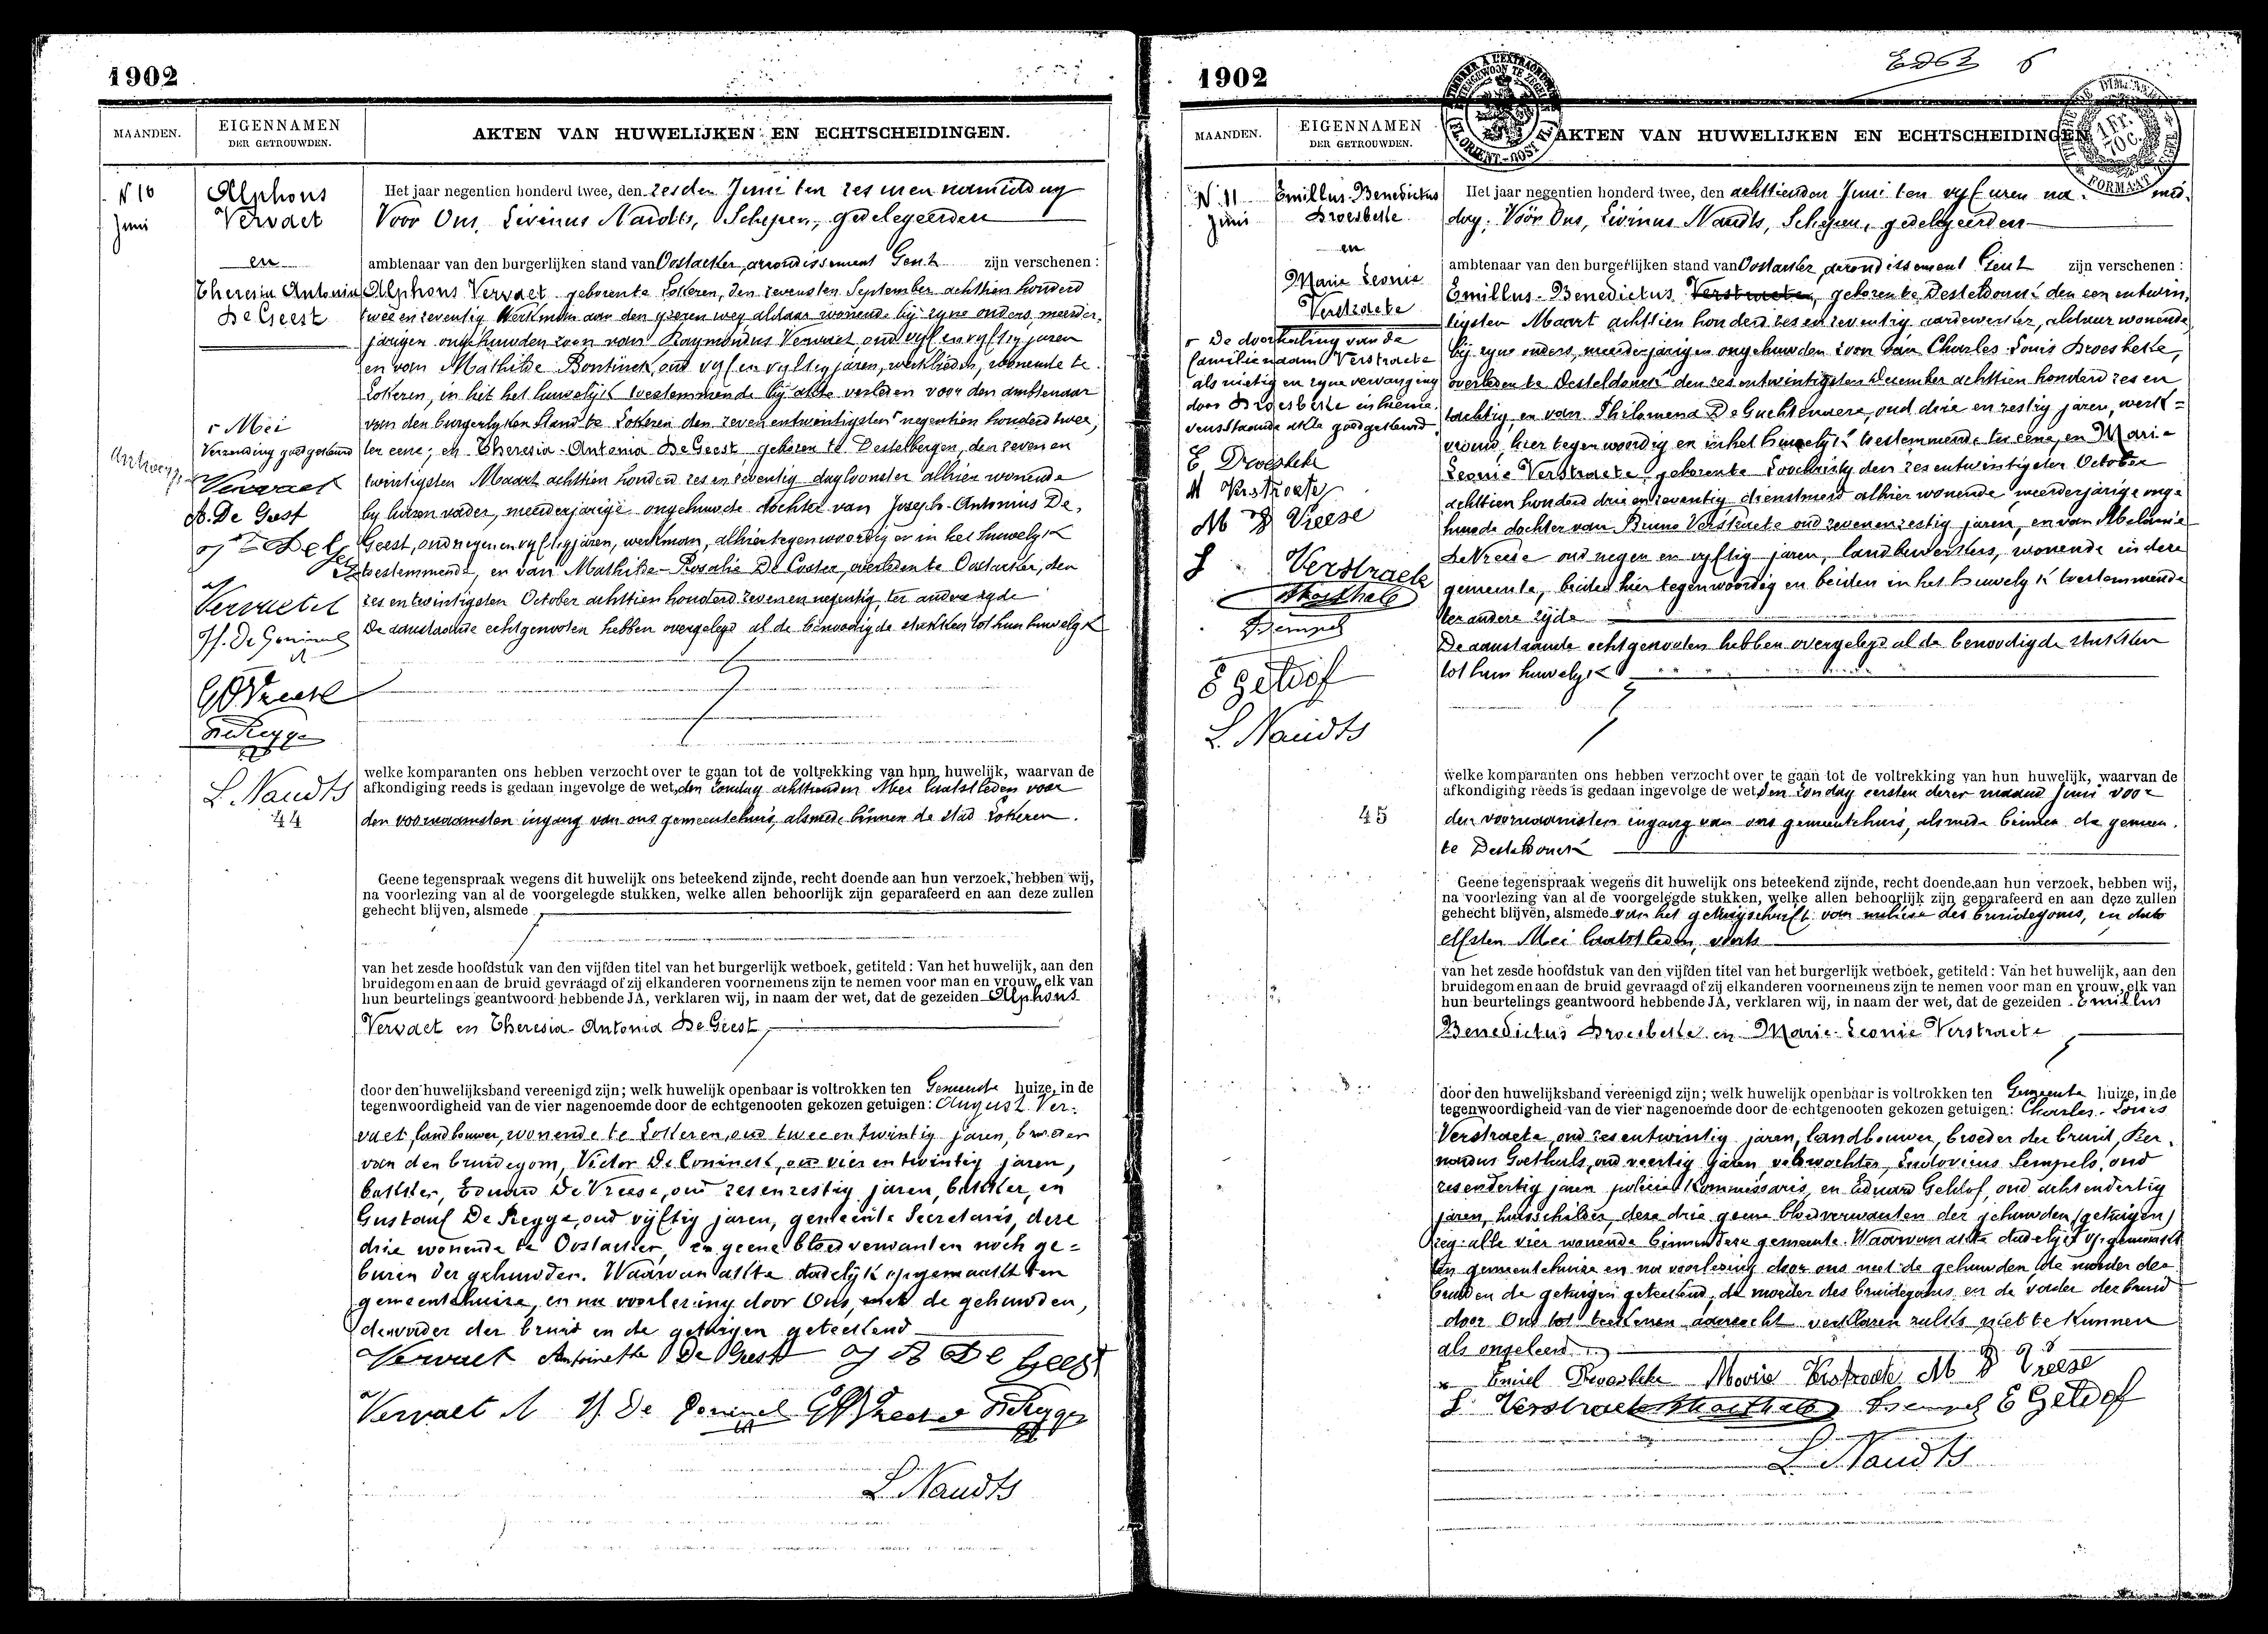 1902
MAANDEN.
EIGENNAMEN
DER GETROUWDEN.
AKTEN VAN HUWELIJKEN EN ECHTSCHEIDINGEN.
N 10
Juni
Alphons
Vervaet
en
Theresia Antonia
De Geest
Mei
Verzending goedgekeurd
Vervaet
A. De Geest
Vervaet A
De Vreese
L. Naudts
44
Het jaar negentien honderd twee, den zesden Juni ten zes uren namiddag
Voor Ons, Livinus Naudts, Schepen, gedelegeerden
ambtenaar van den burgerlijken stand van Oostacker, arrondissement Gent zijn verschenen:
Alphons Vervaet geboren te Lokeren, den zevensten September achttien honderd
twee en zeventig Werkman aan den yzeren weg aldaar wonende bij zyne ouders, meerder-
jarigen ongehuwden zoon van Raymondus Vervaet, oud vyf en vyftig jaren
en van Mathilde Bontinck, oud vyf en vyftig jaren, werklieden, wonende te
Lokeren, in het huwelyk toestemmende bij akte verleden voor den ambtenaar
van den burgerlyken Stand te Lokeren den zeven entwintigsten negentien honderd twee,
ter eene; en Theresia-Antonia De Geest, geboren te Destelbergen, den zeven en
twintigsten Maart achttien honderd zes en zeventig dagloonster alhier wonende
by haren vader, meerderjarige ongehuwde dochter van Joseph-Antonius De
Geest, oud negen en vyftig jaren, werkman, alhier tegenwoordig en in het huwelyk
toestemmende, en van Mathilde-Rosalie De Coster, overleden te Oostacker, den
zes en twintigsten October achttien honderd zeven en negentig, ter andere zyde
De aanstaande echtgenooten hebben overgelegd al de benoodigde stukken tot hun huwelyk
welke komparanten ons hebben verzocht over te gaan tot de voltrekking van hun huwelijk, waarvan de
afkondiging reeds is gedaan ingevolge de wet, den zondag achttienden Mei laatstleden voor
den voornaamsten ingang van ons gemeentehuis, alsmede binnen de stad Lokeren.
Geene tegenspraak wegens dit huwelijk ons beteekend zijnde, recht doende aan hun verzoek, hebben wij,
na voorlezing van al de voorgelegde stukken, welke allen behoorlijk zijn geparafeerd en aan deze zullen
gehecht blijven, alsmede
van het zesde hoofdstuk van den vijfden titel van het burgerlijk wetboek, getiteld: Van het huwelijk, aan den
bruidegom en aan de bruid gevraagd of zij elkanderen voornemens zijn te nemen voor man en vrouw, elk van
hun beurtelings geantwoord hebbende JA, verklaren wij, in naam der wet, dat de gezeiden Alphons
Vervaet en Theresia-Antonia De Geest,
door den huwelijksband vereenigd zijn; welk huwelijk openbaar is voltrokken ten Gemeente huize, in de
tegenwoordigheid van de vier nagenoemde door de echtgenooten gekozen getuigen: August Ver-
vaet, landbouwer, wonende te Lokeren, oud twee en twintig jaren, broeder
van den bruidegom, Victor De Coninck, oud vier en twintig jaren,
bakker, Eduard De Vreese, oud zes en zestig jaren, bakker, en
Gustaaf De Regge, oud vijftig jaren, gemeente Secretaris, deze
drie wonende te Oostacker, en geene bloedverwanten noch ge-
buren der gehuwden. Waarvan akte dadelyk opgemaakt ten
gemeentehuize, en na voorlezing door Ons, met de gehuwden,
den vader der bruid en de getuigen geteekend
Vervaet Antoinette De Geest A De Geest
Vervaet A V De Coninck De Vreese De Regge
L Naudts
1902
MAANDEN.
EIGENNAMEN
DER GETROUWDEN.
AKTEN VAN HUWELIJKEN EN ECHTSCHEIDINGEN.
1 Fr.
70 C.
N 11
Juni
Emillus-Benedictus
Broesbeke
en
Marie Leonie
Verstraete
De doorhaling van de
familienaam Verstraete
als nietig en zyne vervanging
door Broesbeke in hierne-
venstaande akte goedgekeurd
E. Broesbeke
M Verstraete
M D Vreese
Verstraete
E Geldof
L. Naudts
45
Het jaar negentien honderd twee, den achttienden Juni ten vyf uren na- mid-
dag. Voor Ons, Livinus Naudts, Schepen, gedelegeerden
ambtenaar van den burgerlijken stand van Oostacker, arrondissement Gent zijn verschenen:
Emillus-Benedictus Verstraete, geboren te Desteldonck den een entwin-
tigsten Maart achttien honderd zes en zeventig aardewerker, aldaar wonende
bij zyne ouders, meerderjarigen ongehuwden zoon van Charles-Louis Broesbeke,
overleden te Desteldonck den zes entwintigsten December achttien honderd zes en
tachtig, en van Philomena De Guchtenaere, oud drie en zestig jaren, werk-
vrouw, hier tegenwoordig en in het huwelyk toestemmende ter eene, en Marie
Leonie Verstraete, geboren te Loochristy den zes entwintigsten October
achttien honderd drie en zeventig dienstmeid alhier wonende meerderjarige onge-
huwde dochter van Bruno Verstraete oud zeven en zestig jaren, en van Melanie
De Vreese oud negen en vyftig jaren, landbouwers, wonende in deze
gemeente, beiden hier tegenwoordig en beiden in het huwelyk toestemmende
ter andere zyde
De aanstaande echtgenooten hebben overgelegd al de benoodigde stukken
tot hun huwelyk
welke komparanten ons hebben verzocht over te gaan tot de voltrekking van hun huwelijk, waarvan de
afkondiging reeds is gedaan ingevolge de wet, den zondag eersten dezer maand Juni voor
den voornaamsten ingang van ons gemeentehuis, alsmede binnen de gemeen-
te Desteldonck
Geene tegenspraak wegens dit huwelijk ons beteekend zijnde, recht doende aan hun verzoek, hebben wij,
na voorlezing van al de voorgelegde stukken, welke allen behoorlijk zijn geparafeerd en aan deze zullen
gehecht blijven, alsmede van het getuigschrift van melicie des bruidegoms, in dato
elfsten Mei laatstleden,
van het zesde hoofdstuk van den vijfden titel van het burgerlijk wetboek, getiteld: Van het huwelijk, aan den
bruidegom en aan de bruid gevraagd of zij elkanderen voornemens zijn te nemen voor man en vrouw, elk van
hun beurtelings geantwoord hebbende JA, verklaren wij, in naam der wet, dat de gezeiden Emillus
Benedictus Broesbeke en Marie-Leonie Verstraete
door den huwelijksband vereenigd zijn; welk huwelijk openbaar is voltrokken ten Gemeente huize, in de
tegenwoordigheid van de vier nagenoemde door de echtgenooten gekozen getuigen: Charles-Louis
Verstraete, oud zes entwintig jaren, landbouwer, broeder der bruid, Ber-
nardus Goethals, oud veertig jaren veldwachter, Ludovicus Sempels, oud
zes en dertig jaren policie Kommissaris, en Eduard Geldof, oud acht en dertig
jaren, huisschilder, deze drie geene bloedverwanten der gehuwden (getuigen)
alle vier wonende binnen deze gemeente. Waarvan akte dadelijk opgemaakt
ten gemeentehuize en na voorlezing door ons met de gehuwden de moeder der
bruid en de getuigen geteekend, de moeder des bruidegoms en de vader der bruid
door Ons tot teekenen aanzocht verklaren zulks niet te kunnen
als ongeleerd
Emiel Broesbeke Marie Verstraete M D Vreese
Verstraete Goethals Sempels E Geldof
L. Naudts